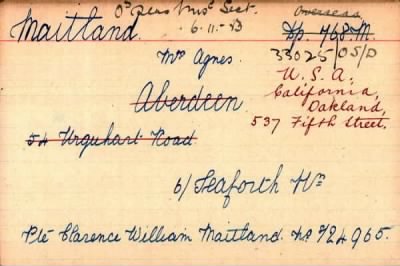 O'seas Miss. Sect. Overseas
Maitland. 6.11.43 Sp. 768M.
33025/OS/D
Mrs Agnes. U.S.A.
Aberdeen California,
Oakland,
54 Urquhart Road 537 Fifth Street.
6/Seaforth Hrs
Pte Clarence William Maitland. No 724965.